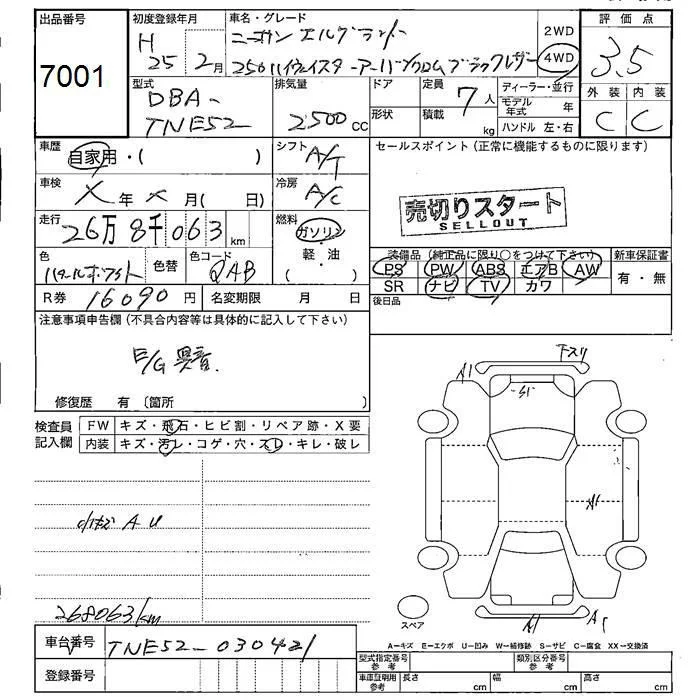 出品番号
7001
初度登録年月
H 25 2月
車名・グレード
ニッサン エルグランド
250ハイウェイスターアーバンクロムブラックレザー
2WD
4WD
評価点
3.5
外装 内装
C C
型式
DBA-
TNE52
排気量
2500 cc
ドア
形状
定員
7人
積載
kg
ディーラー・並行
モデル年式 年
ハンドル 左・右
車歴
自家用・( )
シフト
A/T
セールスポイント(正常に機能するものに限ります)
車検
X年X月( 日)
冷房
A/C
売切りスタート
SELLOUT
走行
26万8千063km
燃料
ガソリン
軽・油
( )
色
パールホワイト
色替
色コード
QAB
装備品(純正品に限り○をつけて下さい)
PS PW ABS エアB AW
SR ナビ TV カワ
新車保証書
有・無
R券 16090円
名変期限 月 日
後日品
注意事項申告欄(不具合内容等は具体的に記入して下さい)
E/G異音.
修復歴 有〔箇所 〕
検査員
記入欄
FW キズ・飛石・ヒビ割・リペア跡・X要
内装 キズ・汚レ・コゲ・穴・スレ・キレ・破レ
小キズ A U
268063km
下スリ
A1
A1
A1
A1
スペア
A―キズ E―エクボ U―凹み W―補修跡 S―サビ C―腐食 XX―交換済
車台番号 TNE52-030421
登録番号
型式指定番号
参考
類別区分番号
参考
車庫証明用
参考
長さ cm
幅 cm
高さ cm